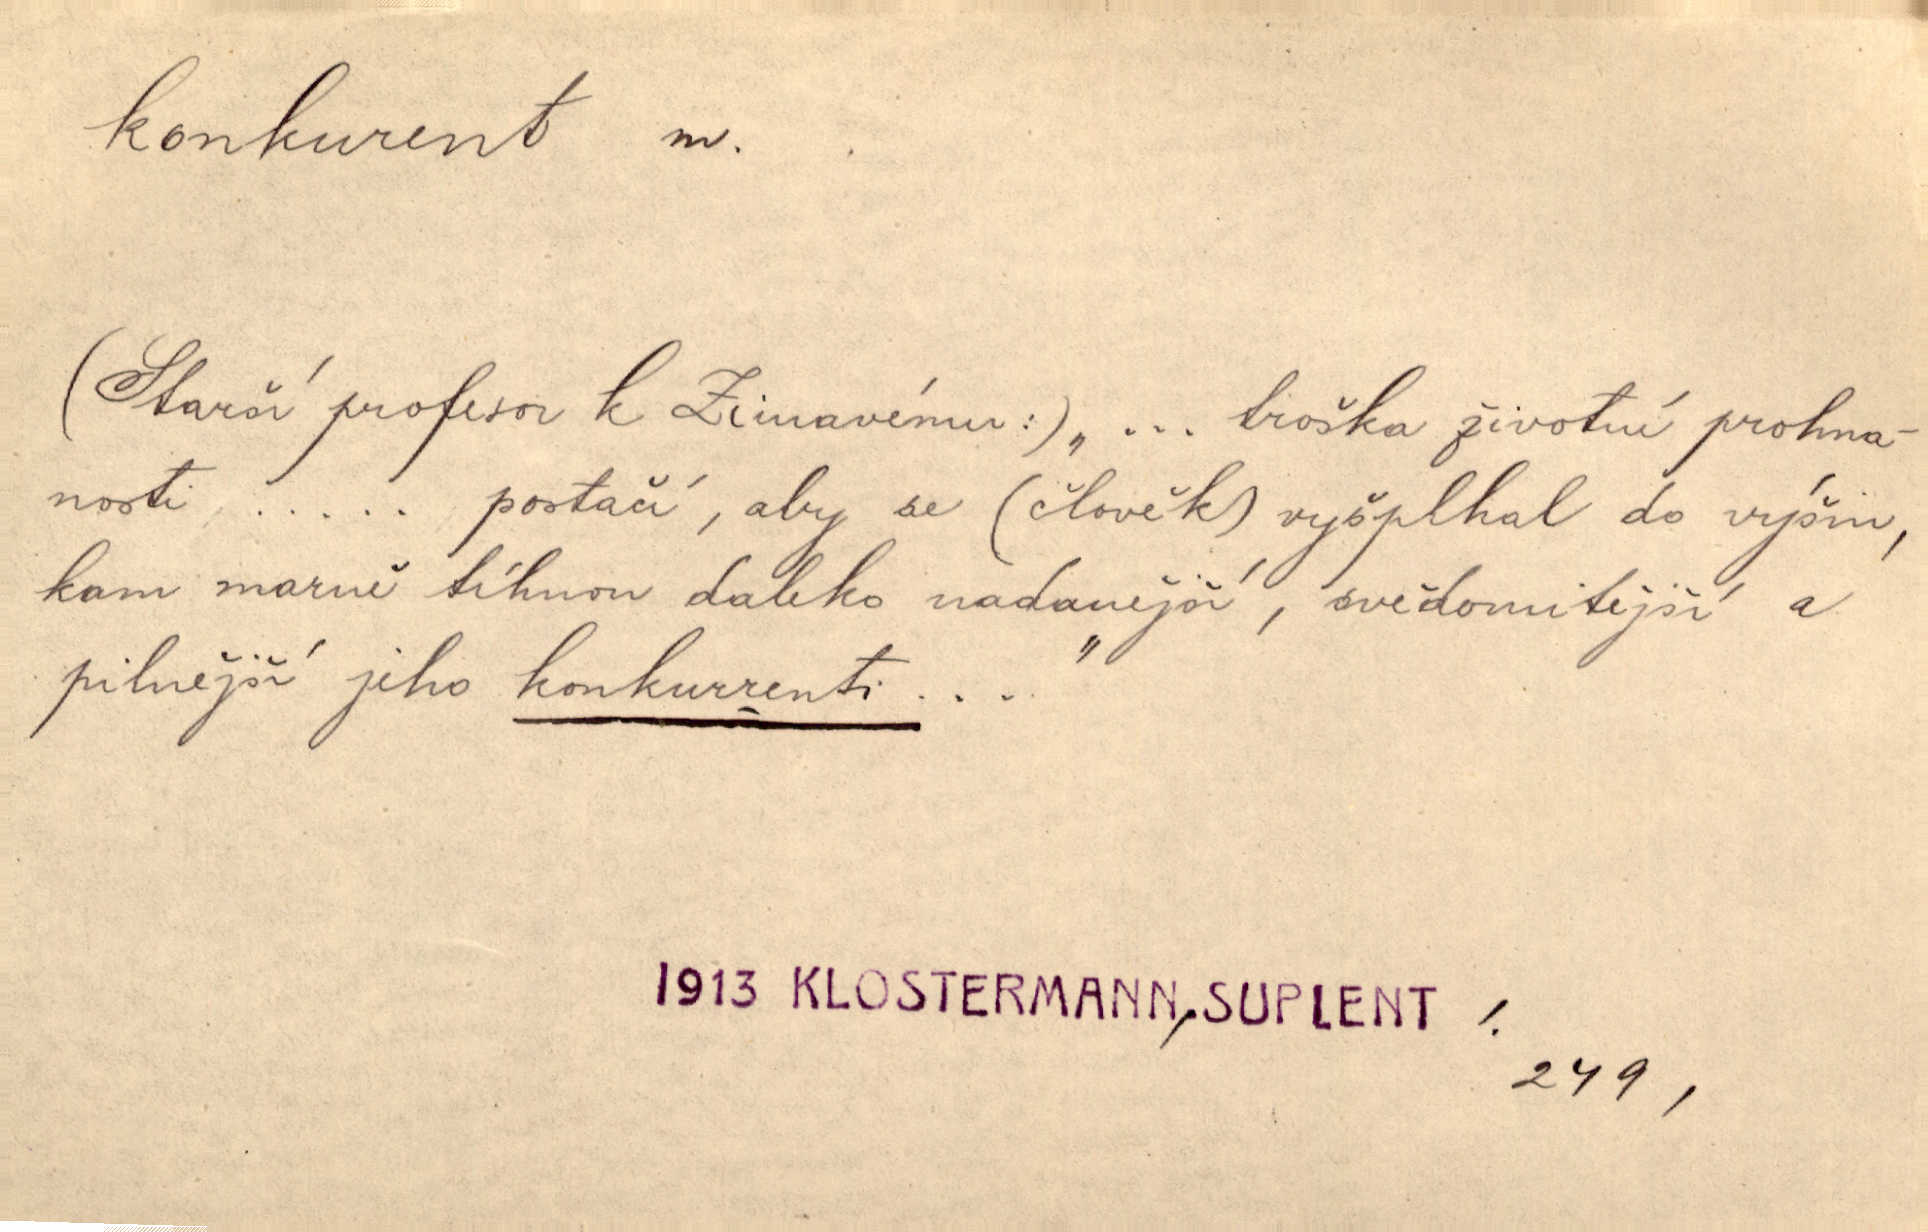 konkurent m.
(Starší profesor k Zimavému:) „... troška životní prohna-
nosti ..... postačí, aby se (člověk) vyšplhal do výšin,
kam marně tíhnou daleko nadanější, svědomitější a
pilnější jeho konkurrenti ...."
1913 KLOSTERMANN, SUPLENT 1.
249,